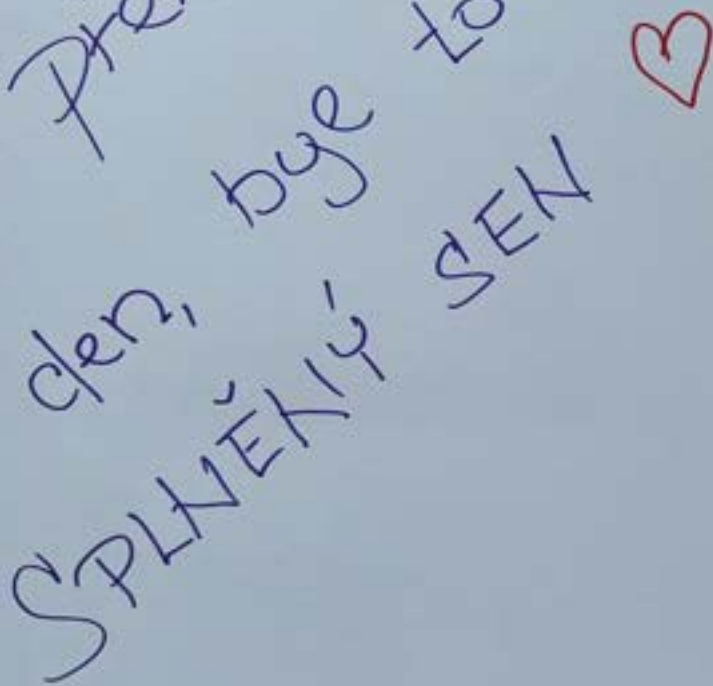 den, byl to
SPLNĚNÝ SEN